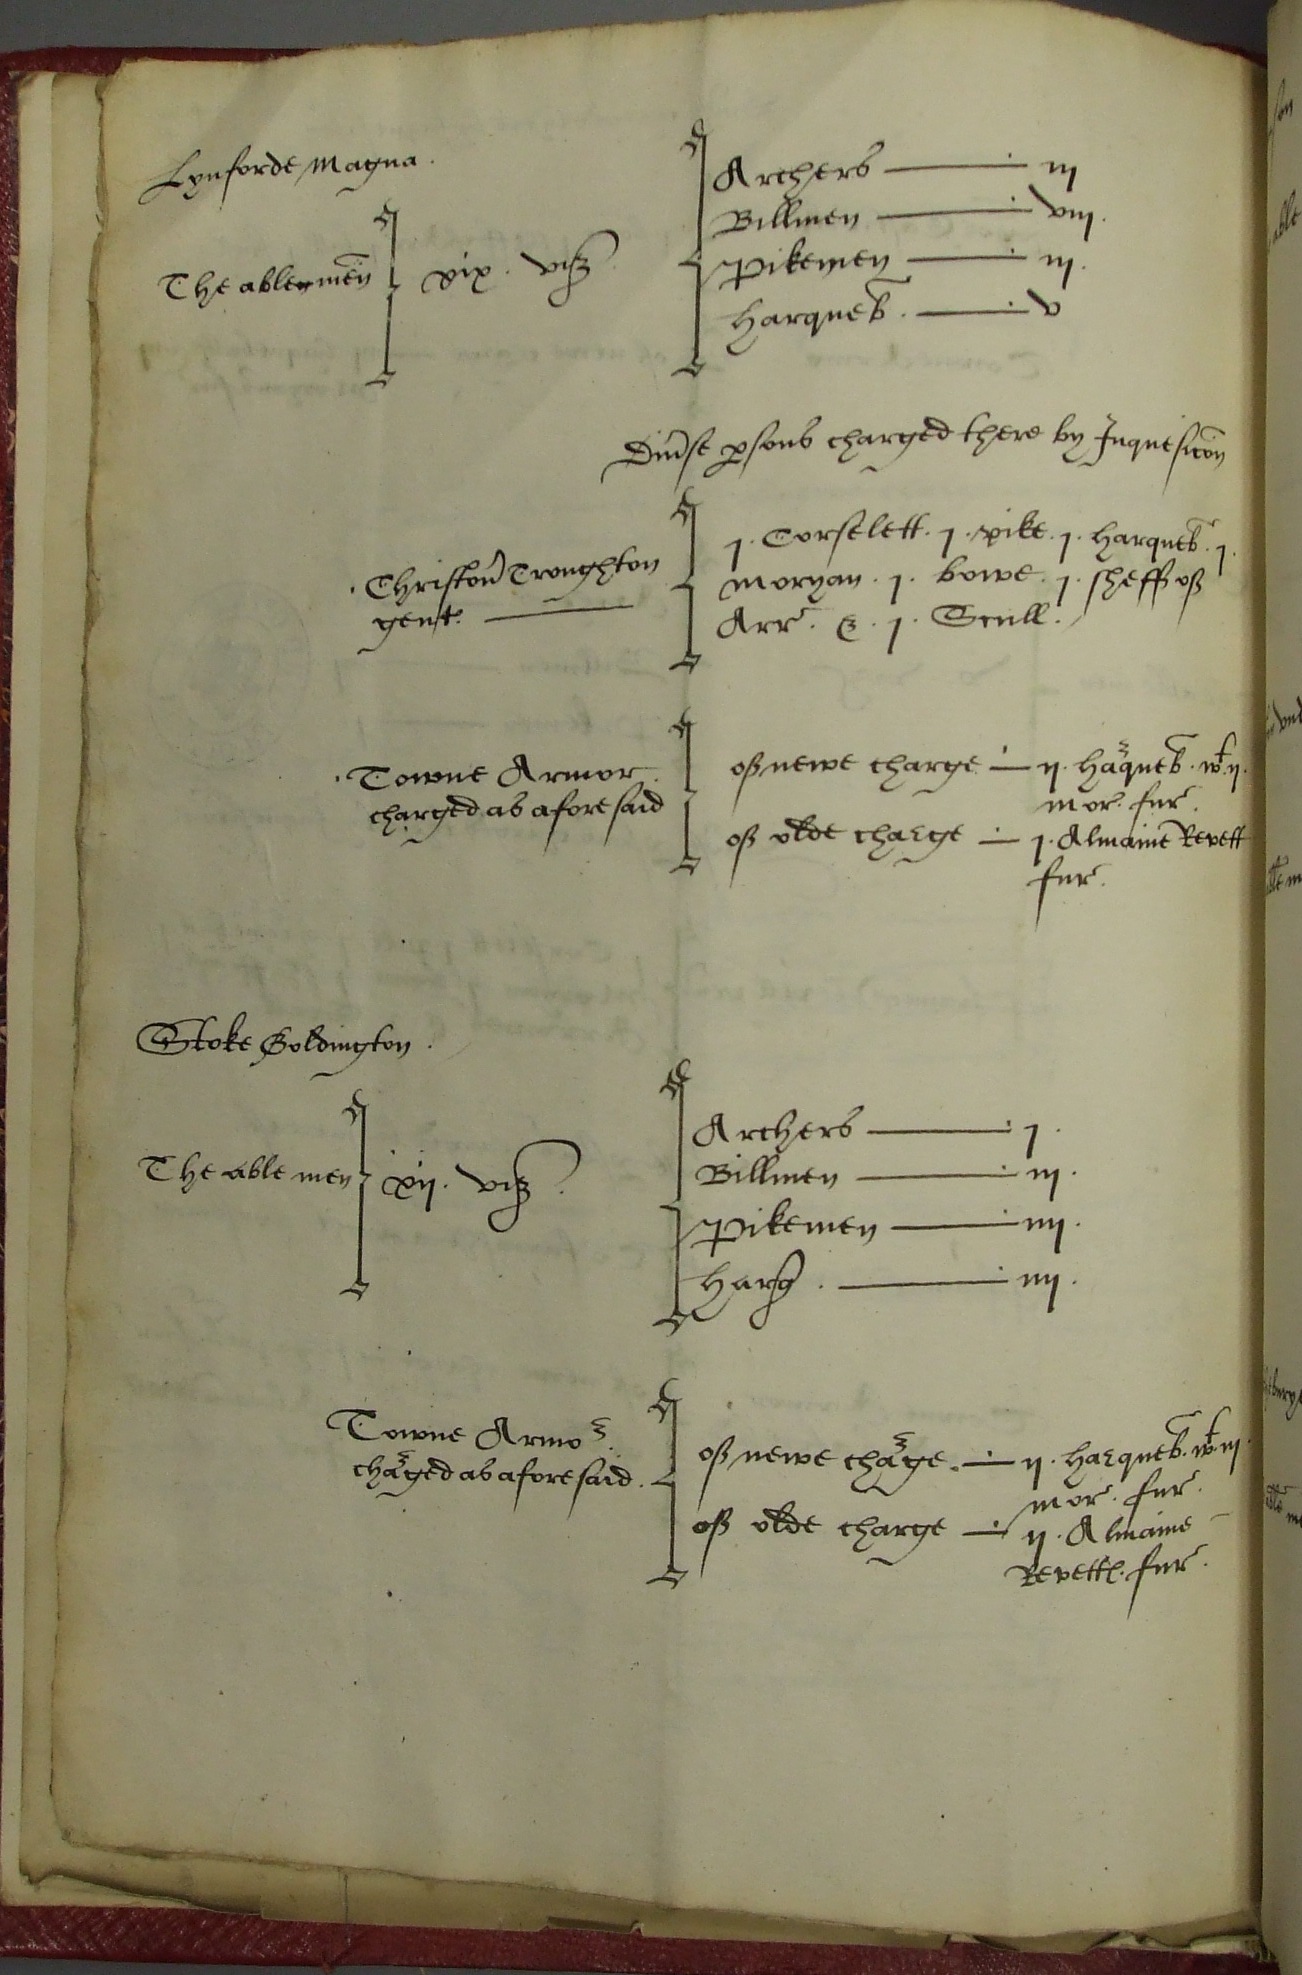 Lynforde Magna.
The able men xix. viz
Archers — iij
Billmen — viij.
Pikemen — iij.
Harqueb. — v
Diu'se p'sons charged there by Inquesicon
Christofer Troughton
gent. —
j. Corselett. j. pike. j. harqueb. j.
moryan. j. bowe. j. sheff of
Arr. & j. Scull.
Towne Armor
charged as aforesaid
of newe charge — ij. harqueb. wt ij.
mor. fur.
of olde charge — j. Almaine Revett
fur.
Stoke Goldington.
The able men xij. viz.
Archers — j.
Billmen — iij.
Pikemen — iiij.
Harq. — iiij.
Towne Armor
charged as aforesaid.
of newe charge. — ij. harqueb. wt ij
mor. fur.
of olde charge — ij. Almaine
Revettes. fur.